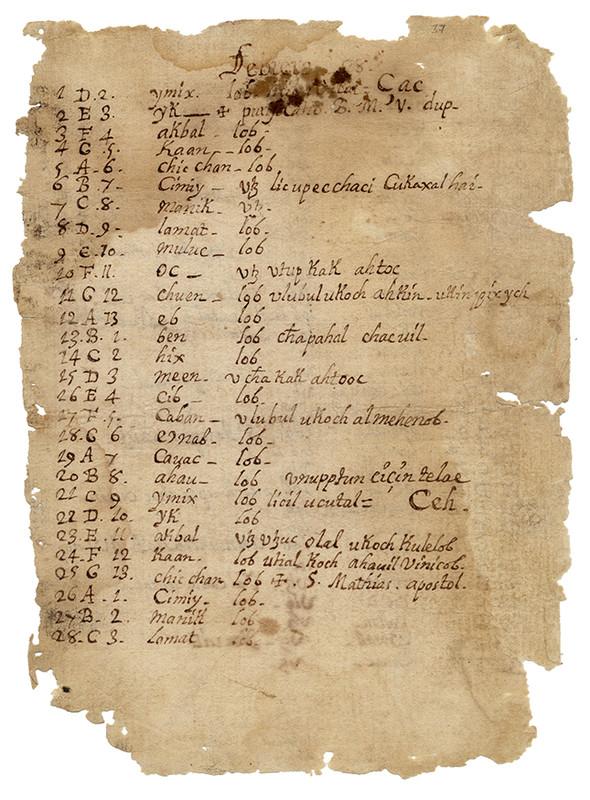 37
Febrero
1 D. 2. ymix. lob Çac
2 E 3. yK — ✠ purif Cant. B. M. V. dup-
3 F 4 akbal - lob-
4 G. 5. Kaan - lob-
5 A - 6. chic chan - lob
6 B. 7- Cimiy - utz licupec chaci Cukaxal hai-
7 C 8. Manik - utz.
8 D. 9- lamat - lob.
9 E. 10. muluc - lob
10 F. 11. OC — utz utup kak ahtoc
11 G 12 chuen - lob ulubul ukoch ahkin - ukin
12 A 13 eb lob
13. B. 1. ben lob chapahal chacuil-
14 C 2 hix lob
15 D 3 meen - u cha kak ahtooc
16 E 4 Cib - lob.
17 F. 5. Caban - ulubul ukoch almehenob-
18. G 6 eɔnab - lob-
19 A 7 Cauac - lob-
20 B 8. ahau - lob unupptun ciçin telae
21 C 9 ymix lob licil ucutal = Ceh.
22 D. 10. yK lob
23. E. 11. akbal utz utzuc olal ukoch kulelob
24. F 12 Kaan. lob utial koch ahauil Vinicob.
25 G 13. chic chan lob ✠. S. Mathias. apostol.
26 A . 1. Cimiy - lob.
27 B. 2. manik lob
28. C 3. lamat lob.